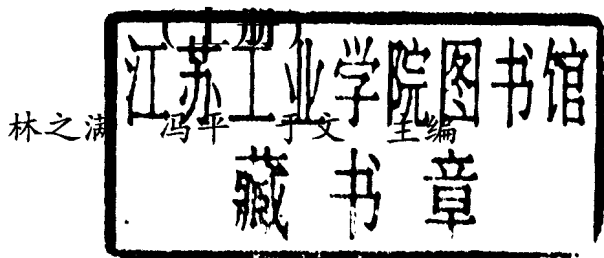 江苏工业学院图书馆
林之满 冯平 于文 主编
藏书章